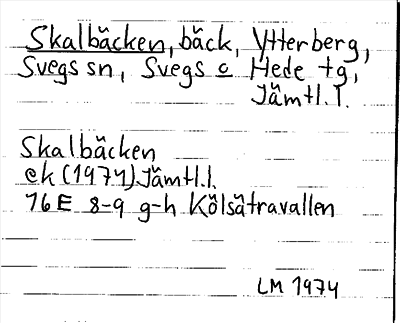 Skalbäcken, bäck, Ytterberg,
Svegs sn, Svegs o Hede tg,
Jämtl. l.
Skalbäcken
ek (1974) Jämtl.l.
16E 8-9 g-h Kölsätravallen
LM 1974